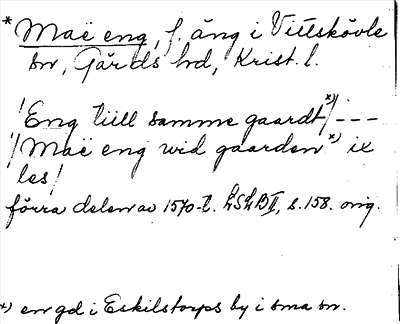 * Maë eng, f. äng i Vittskövle
sn, Gärds hd, Krist. l.
! Eng tiill samme gaardt *) / ---
! / Maë eng wid gaarden *) ix
les /
förra delen av 1570-t. LSLB II, s. 158. orig.
*) en gd i Eskilstorps by i sma sn.